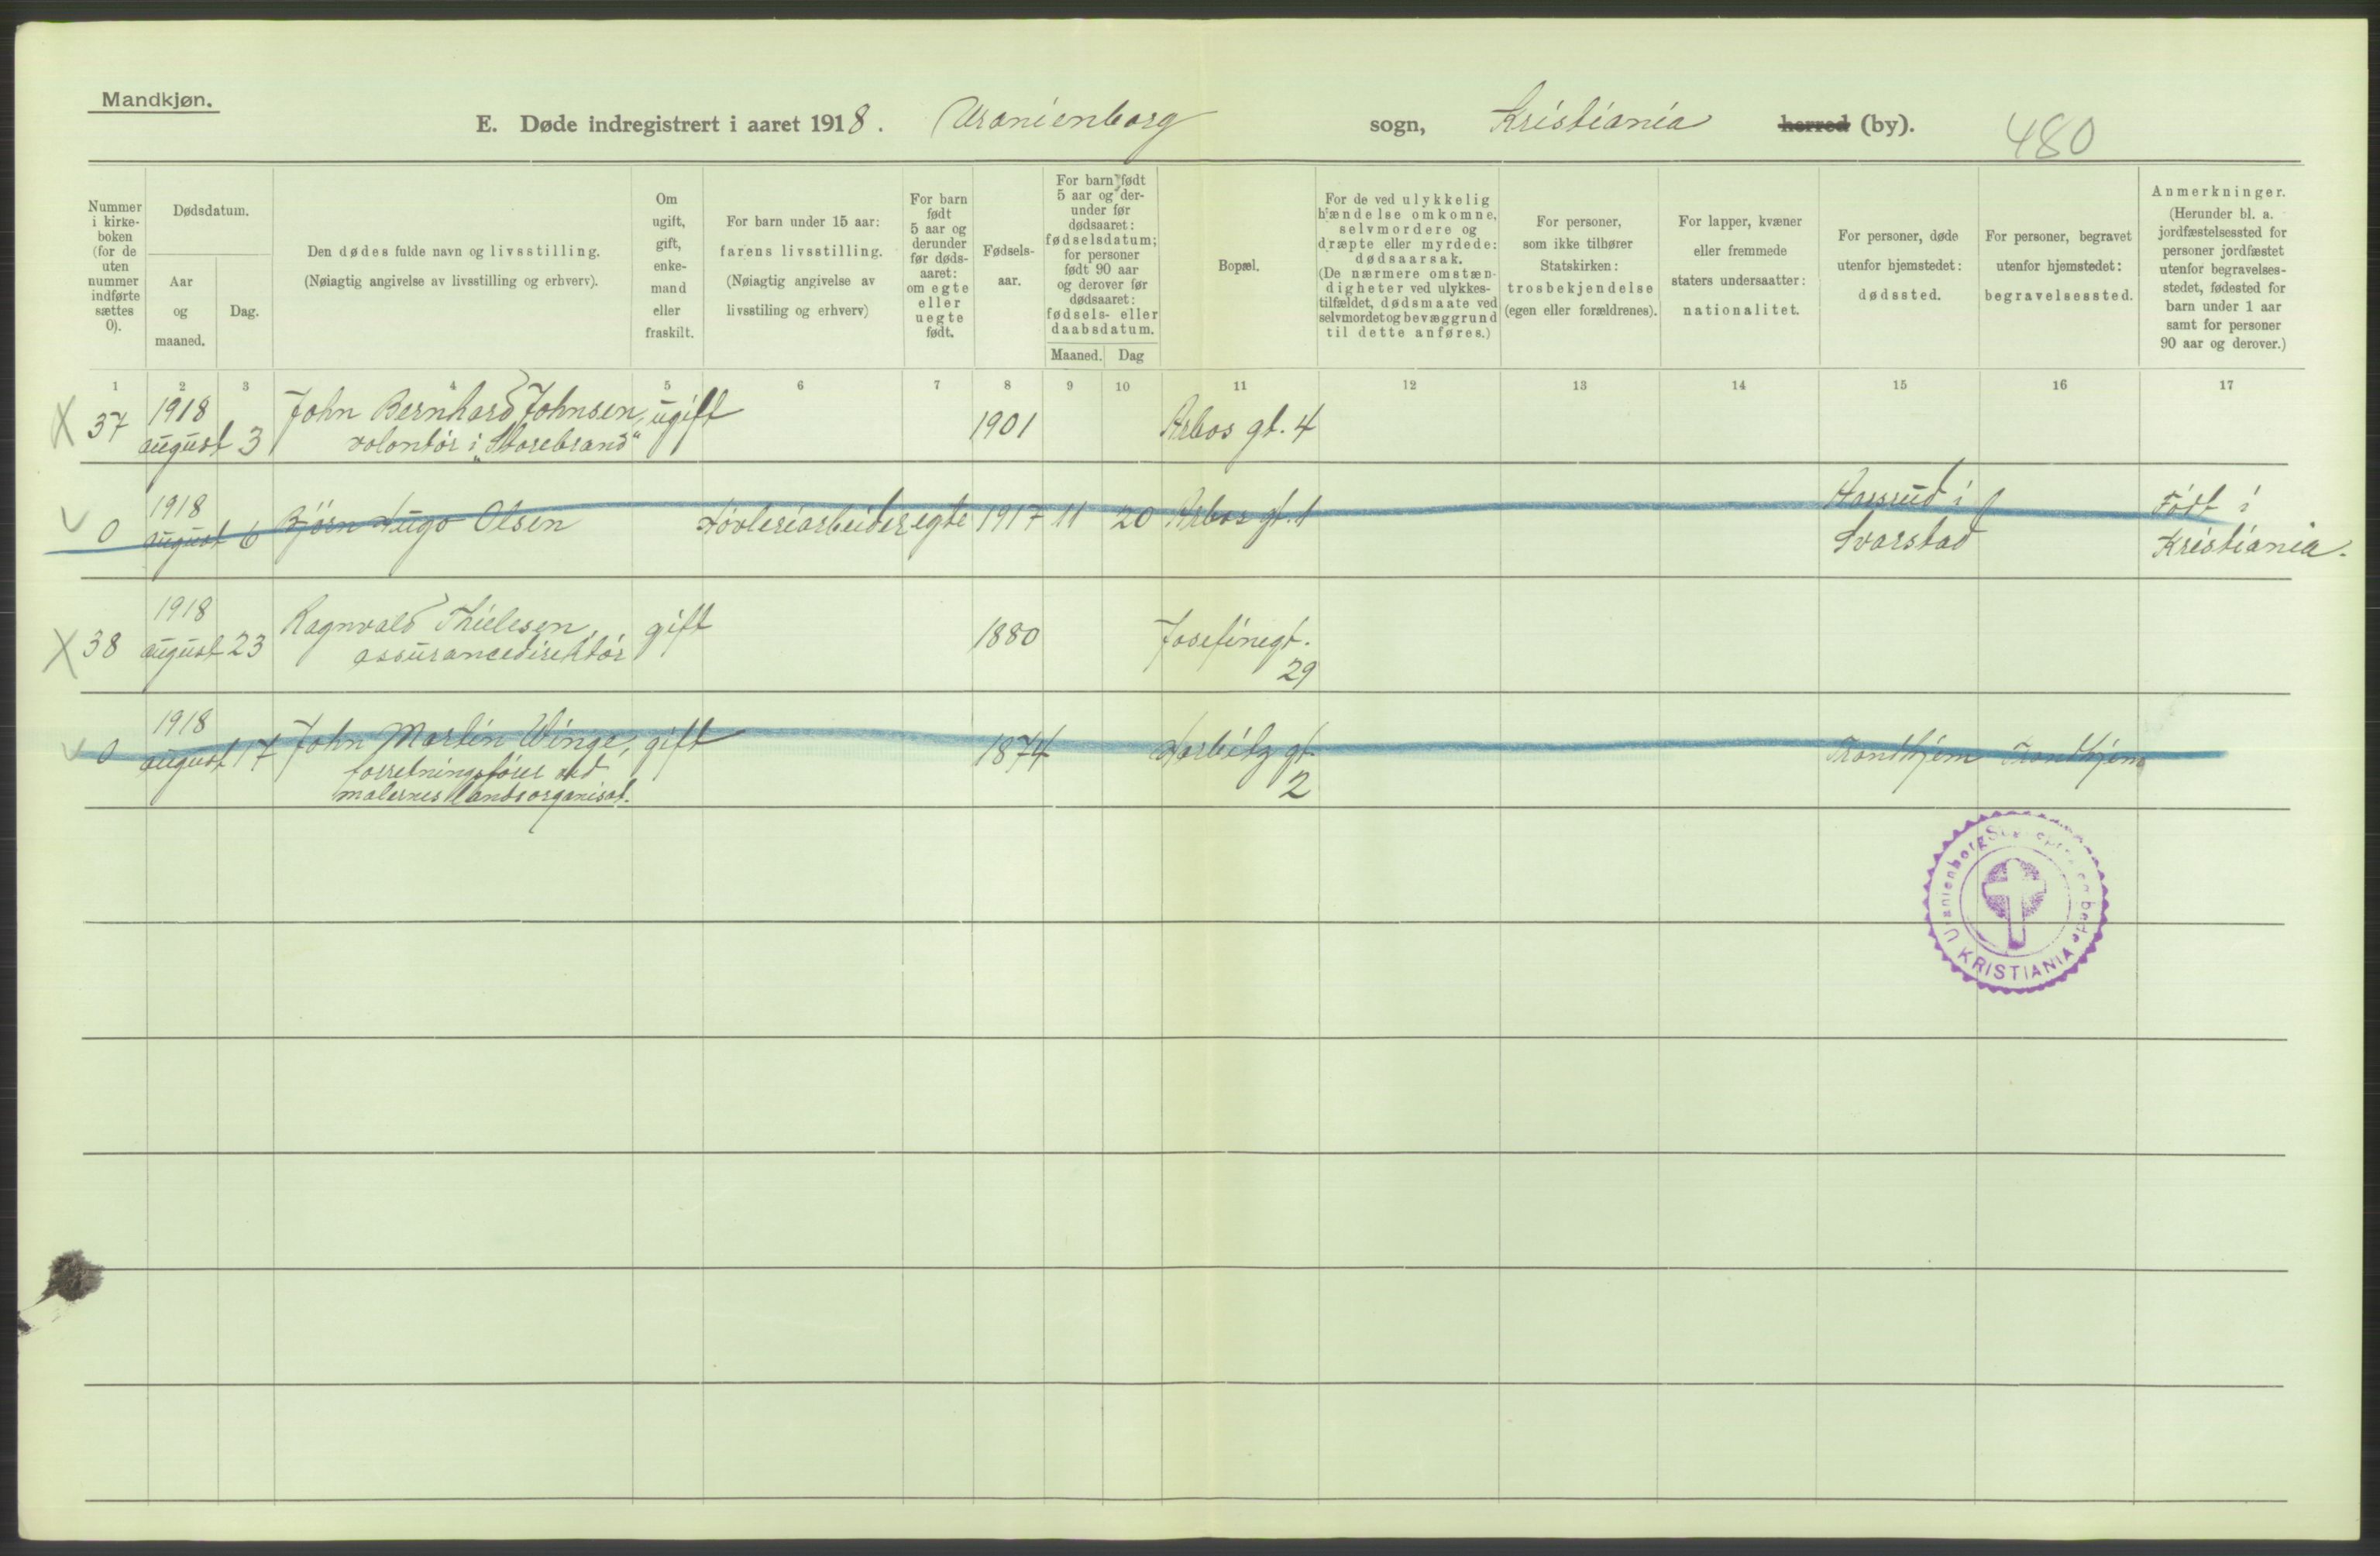 Mandkjøn.
E. Døde indregistrert i aaret 1918. Uranienborg sogn, Kristiania herred (by). 480
Nummer i kirke-boken (for de uten nummer indførte sættes 0).
Dødsdatum.
Aar og maaned.
Dag.
Den dødes fulde navn og livsstilling.
(Nøiagtig angivelse av livsstilling og erhverv).
Om ugift, gift, enke-mand eller fraskilt.
For barn under 15 aar:
farens livsstilling.
(Nøiagtig angivelse av livsstiling og erhverv)
For barn født 5 aar og derunder før døds-aaret: om egte eller uegte født.
Fødsels-aar.
For barn født 5 aar og der-under før dødsaaret: fødselsdatum; for personer født 90 aar og derover før dødsaaret: fødsels- eller daabsdatum.
Maaned. Dag
Bopæl.
For de ved ulykkelig hændelse omkomne, selvmordere og dræpte eller myrdede: dødsaarsak.
(De nærmere omstæn-digheter ved ulykkes-tilfældet, dødsmaate ved selvmordet og bevæggrund til dette anføres.)
For personer, som ikke tilhører Statskirken: trosbekjendelse (egen eller forældrenes).
For lapper, kvæner eller fremmede staters undersaatter: nationalitet.
For personer, døde utenfor hjemstedet: dødssted.
For personer, begravet utenfor hjemstedet: begravelsessted.
Anmerkninger.
(Herunder bl. a. jordfæstelsessted for personer jordfæstet utenfor begravelses-stedet, fødested for barn under 1 aar samt for personer 90 aar og derover.)
1 2 3 4 5 6 7 8 9 10 11 12 13 14 15 16 17
X 37 1918 august 3 John Bernhard Johnsen, ugift 1901 Arbos gt. 4
volontør i „Storebrand"
0 1918 august 6 Bjørn Hugo Olsen Høvleriarbeider egte 1917 11 20 Arbos gt. 1 Svarstad Født i Kristiania.
X 38 1918 august 23 Ragnvald Thielesen, gift 1880 Josefinegt. 29
assurancedirektør
0 1918 august 17 John Martin Winge, gift 1874 Herbitz gt. 2 Trondhjem Trondhjem
forretningsfører ved
malernes landsorganisat.
Uranienborg
KRISTIANIA